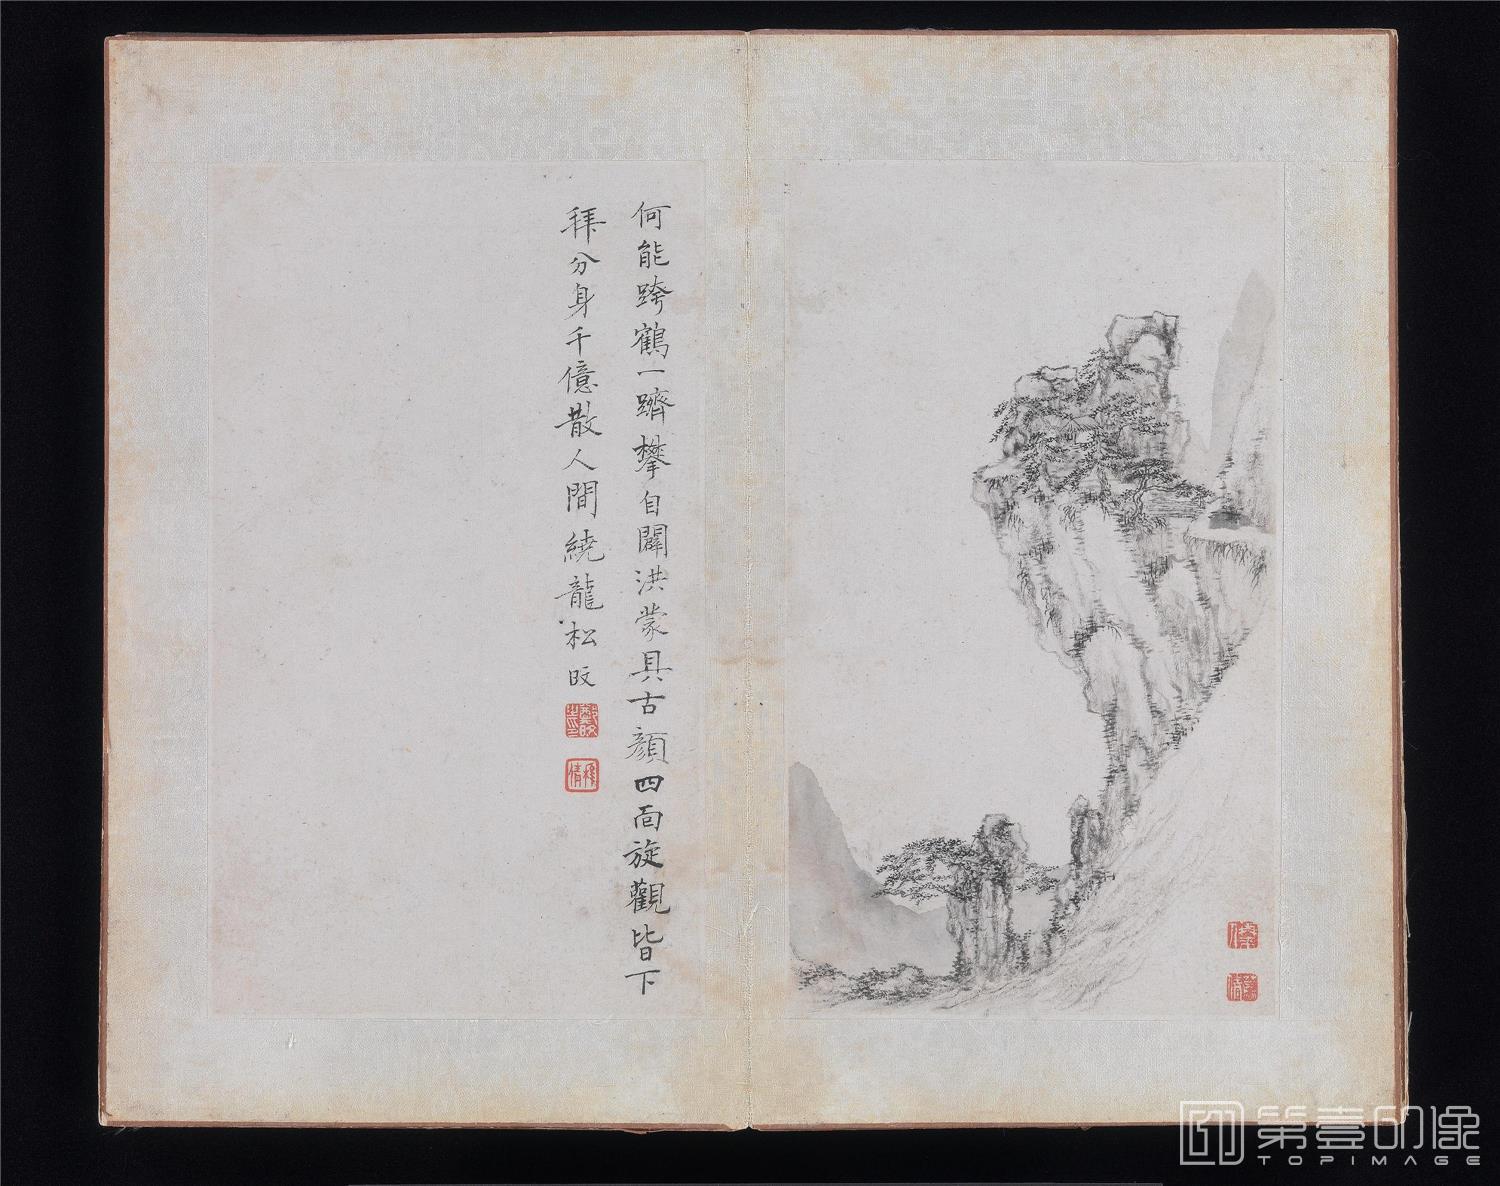 何能跨鶴一躋攀自闢洪蒙具古顏四面旋觀皆下
拜分身千億散人間繞龍松旼
第壹印像
TOPIMAGE